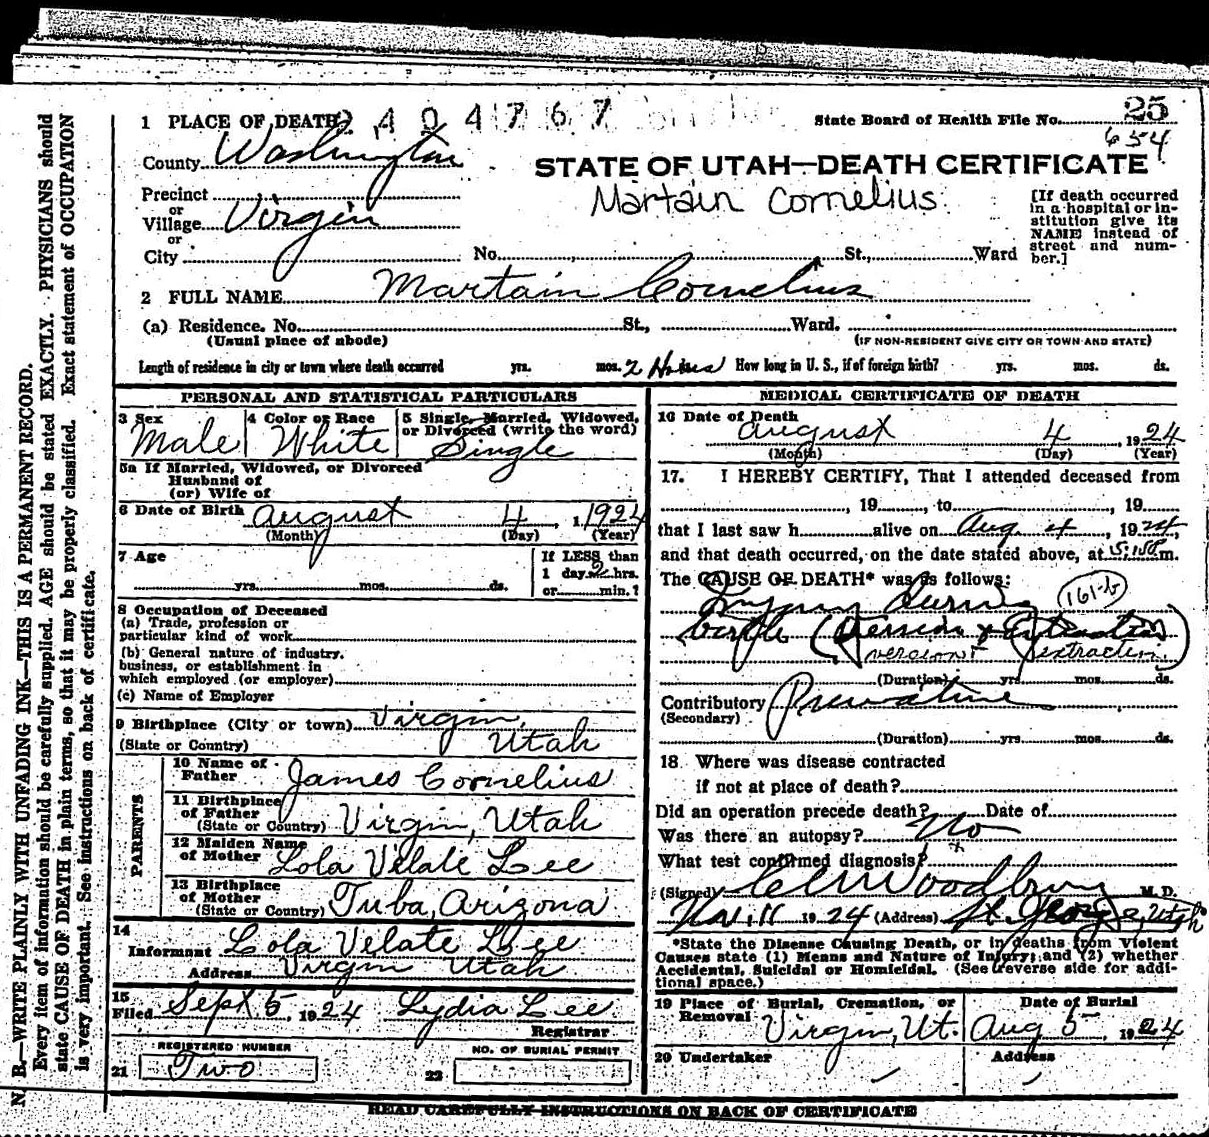 25
1 PLACE OF DEATH 404767 State Board of Health File No. 654
County Washington
STATE OF UTAH—DEATH CERTIFICATE
Martain Cornelius
Precinct
or
Village Virgin
or
City
No. St., Ward
[If death occurred
in a hospital or in-
stitution give its
NAME instead of
street and num-
ber.]
2 FULL NAME Martain Cornelius
(a) Residence. No. St., Ward.
(Usual place of abode) (IF NON-RESIDENT GIVE CITY OR TOWN AND STATE)
Length of residence in city or town where death occurred yrs. mos. 2 Hours How long in U. S., if of foreign birth? yrs. mos. ds.
PERSONAL AND STATISTICAL PARTICULARS
3 Sex
Male
4 Color or Race
White
5 Single, Married, Widowed,
or Divorced (write the word)
Single
5a If Married, Widowed, or Divorced
Husband of
(or) Wife of
6 Date of Birth August 4, 1924
(Month) (Day) (Year)
7 Age
yrs. mos. ds.
If LESS than
1 day 2 hrs.
or min.?
8 Occupation of Deceased
(a) Trade, profession or
particular kind of work
(b) General nature of industry,
business, or establishment in
which employed (or employer)
(c) Name of Employer
9 Birthplace (City or town) Virgin,
(State or Country) Utah
PARENTS
10 Name of
Father James Cornelius
11 Birthplace
of Father
(State or Country) Virgin, Utah
12 Maiden Name
of Mother Lola Velate Lee
13 Birthplace
of Mother
(State or Country) Tuba, Arizona
14
Informant Lola Velate Lee
Address Virgin Utah
15
Filed Sept. 5, 1924 Lydia Lee
Registrar
REGISTERED NUMBER
21 Two
NO. OF BURIAL PERMIT
22
MEDICAL CERTIFICATE OF DEATH
16 Date of Death
August 4, 1924
(Month) (Day) (Year)
17. I HEREBY CERTIFY, That I attended deceased from
, 19 , to , 19
that I last saw h alive on Aug. 4, 1924,
and that death occurred, on the date stated above, at m.
The CAUSE OF DEATH* was as follows:
Injury During 161-b
birth (Version & Extraction)
version + extraction
(Duration) yrs. mos. ds.
Contributory
(Secondary)
(Duration) yrs. mos. ds.
18 Where was disease contracted
if not at place of death?
Did an operation precede death? Date of
Was there an autopsy? No
What test confirmed diagnosis?
(Signed) Woodbury M. D.
Nov. 11 1924 (Address) St. George, Utah
*State the Disease Causing Death, or in deaths from Violent
Causes state (1) Means and Nature of Injury; and (2) whether
Accidental, Suicidal or Homicidal. (See reverse side for addi-
tional space.)
19 Place of Burial, Cremation, or
Removal Virgin, Ut.
Date of Burial
Aug 5, 1924
20 Undertaker
Address
READ CAREFULLY INSTRUCTIONS ON BACK OF CERTIFICATE
N. B.—WRITE PLAINLY WITH UNFADING INK—THIS IS A PERMANENT RECORD.
Every item of information should be carefully supplied. AGE should be stated EXACTLY. PHYSICIANS should
state CAUSE OF DEATH in plain terms, so that it may be properly classified. Exact statement of OCCUPATION
is very important. See instructions on back of certificate.